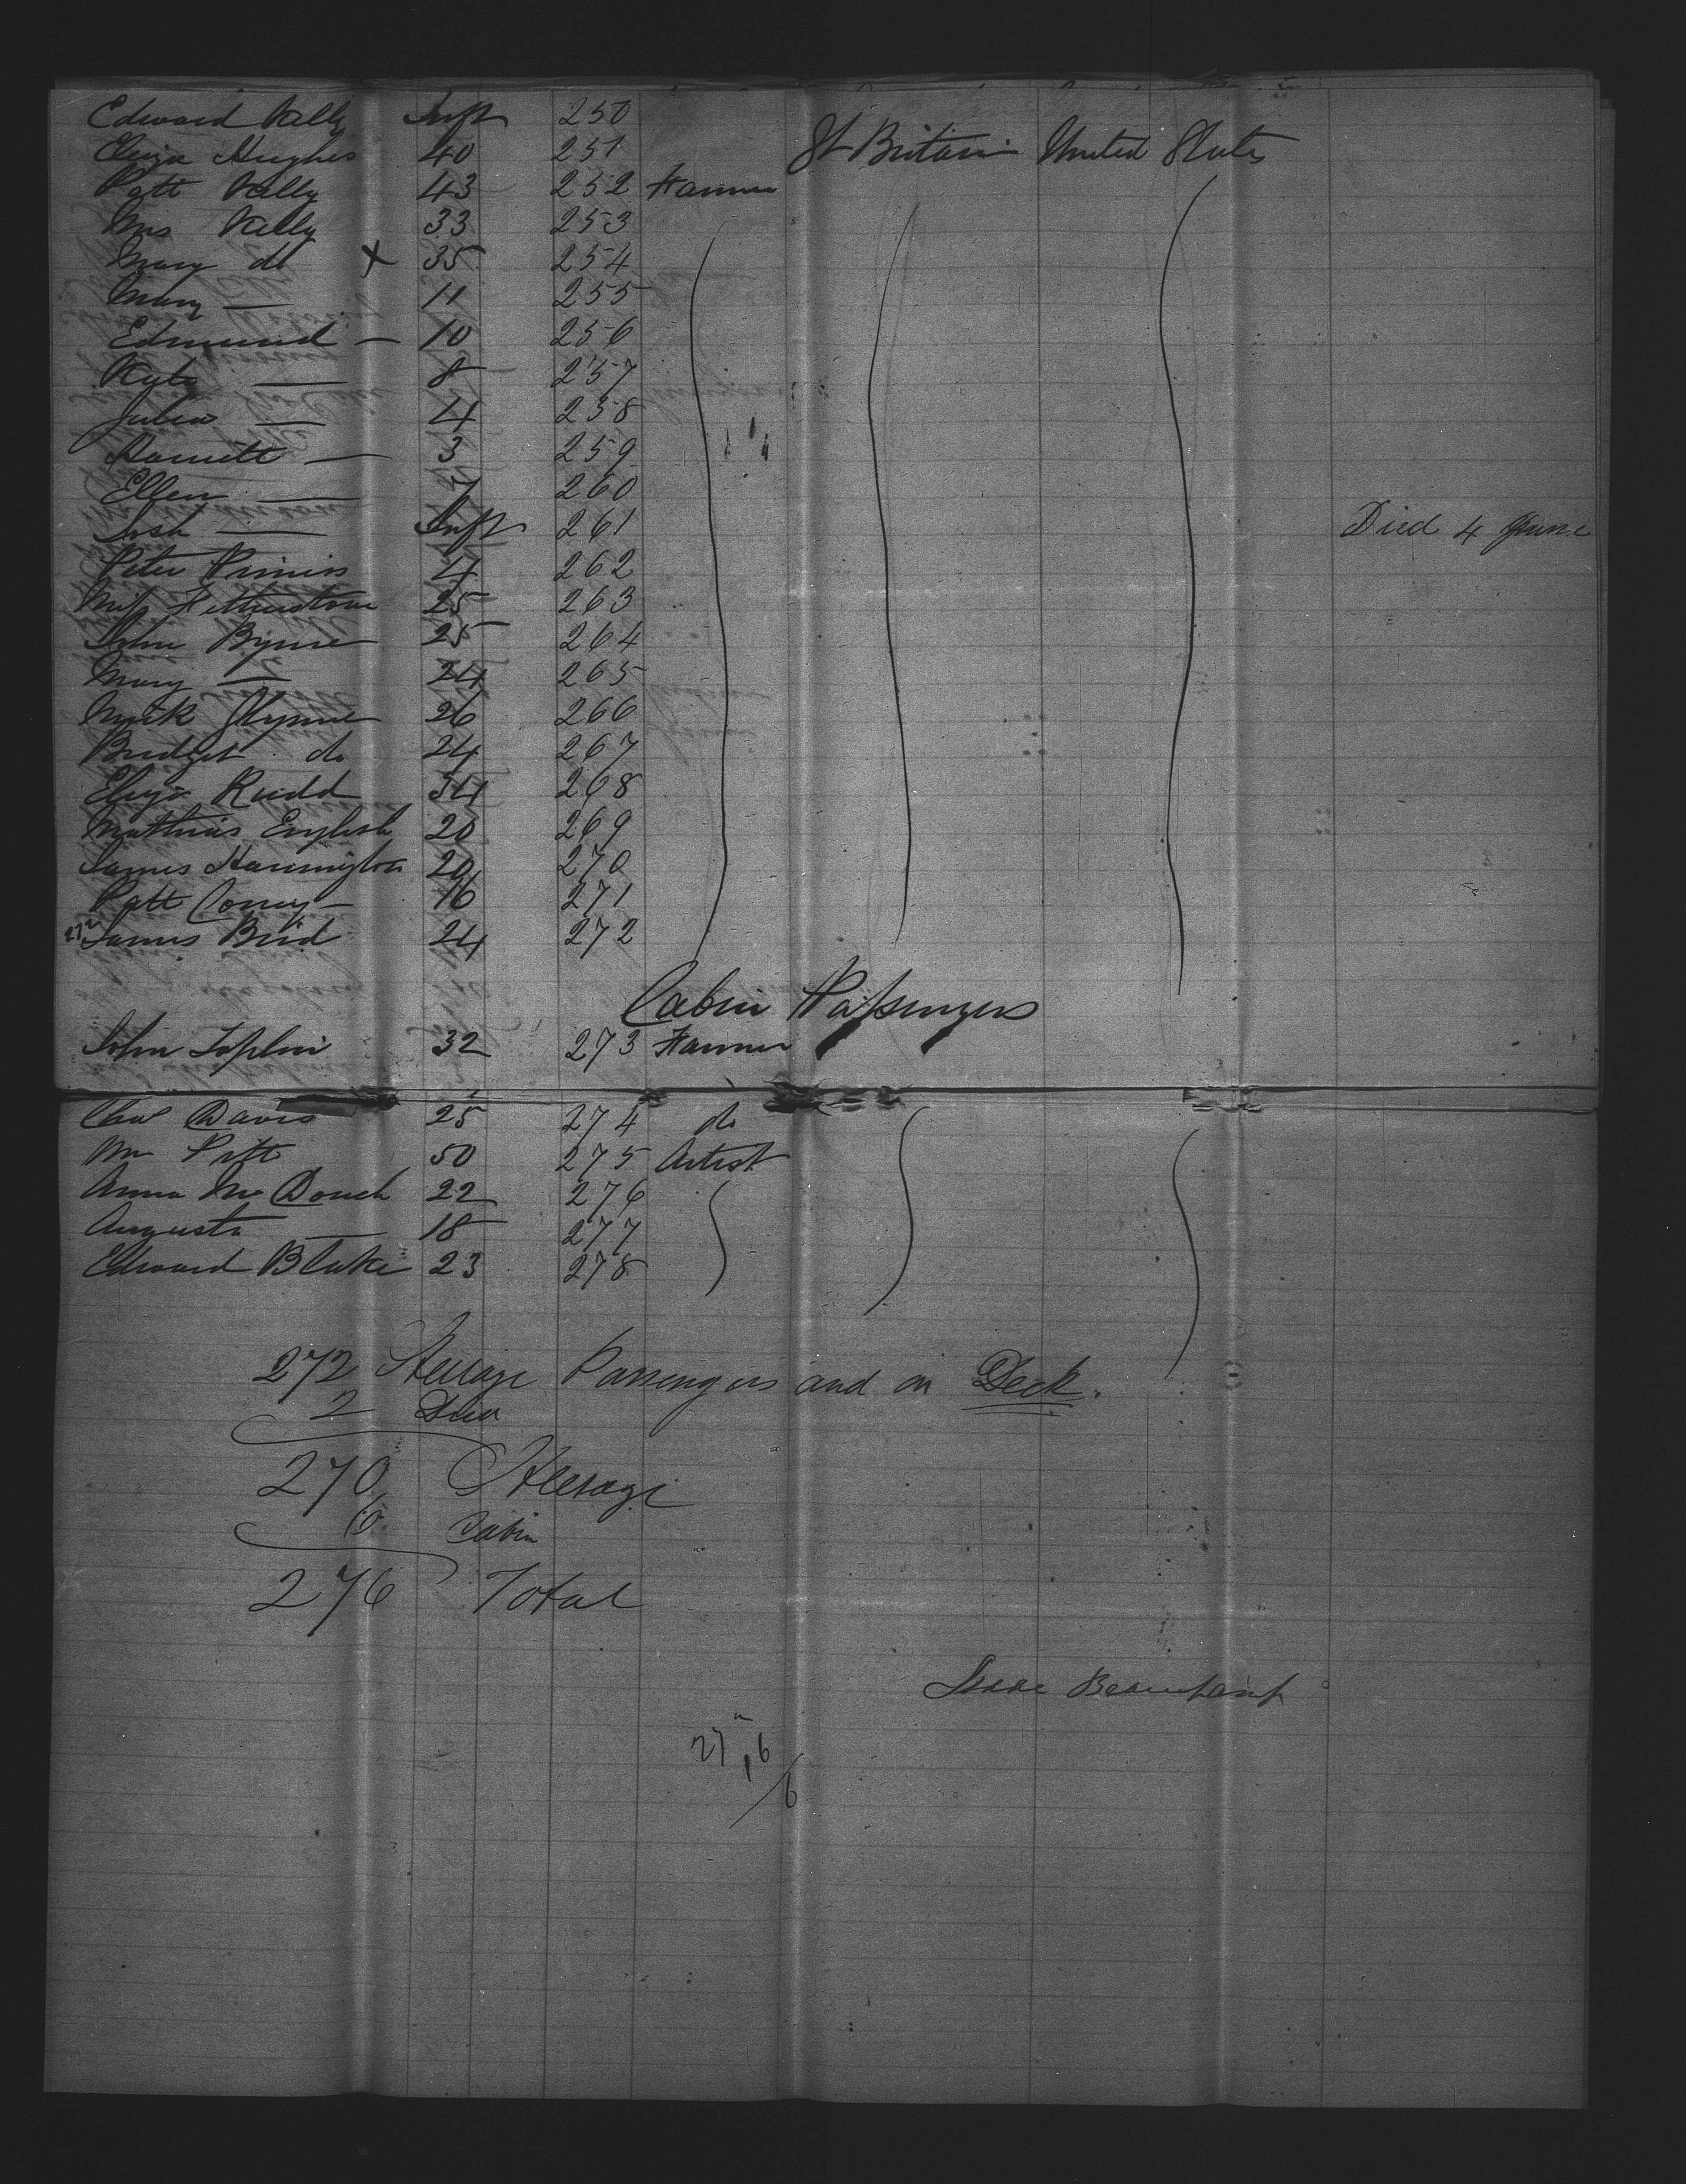 Edward Kelly Inft 250
Eliza Hughes 40 251 Gt Britain United States
Patt Kelly 43 252 Farmer
Mrs Kelly 33 253
Mary do X 35 254
Mary — 11 255
Edmund — 10 256
Kate — 8 257
Julia — 4 258
Harriett — 3 259
Ellen — 7 260
Josh — Inft 261 Died 4 June
Peter 4 262
25 263
John Byrne 25 264
Mary — 24 265
26 266
Bridget do 24 267
Eliza Rudd 34 268
Mathias English 20 269
James Harrington 20 270
Patt 16 271
272 James Bird 24 272
Cabin Passengers
John Joplin 32 273 Farmer
Davis 25 274 do
Mr Pitt 50 275 Artist
Anna 22 276
Augusta — 18 277
Edward Blake 23 278
272 Steerage Passengers and on Deck.
2 Died
270 Steerage
6 Cabin
276 Total
Isaac Beauchamp
27 6
6